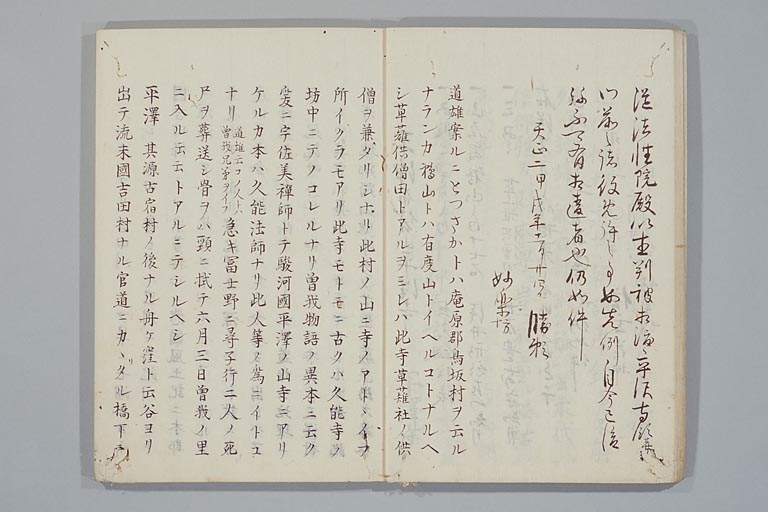 従法性院殿以直判被相済平沢寺
如先例自今已後
不可有相違者也仍如件
天正二甲戌年 勝頼
妙楽坊
道雄案ルニとつさかトハ庵原郡鳥坂村ヲ云ル
ナランカ 山トハ有度山トイヘルコトナルヘ
シ草薙供僧田トアルヲミレハ此寺草薙社ノ供
僧ヲ兼タリシナリ此村ノ山ニ寺ノアトヽイフ
所イクラモアリ此寺モトモニ古クハ久能寺ノ
坊中ニテノコレルナリ曽我物語ノ異本ニ云ク
爰ニ宇佐美禅師トテ駿河國平澤ノ山寺ニアリ
ケルカ本ハ久能法師ナリ此人等ノ為ニイトコ
ナリ道雄云コノ人トハ曽我兄弟ヲイフ急キ冨士野ニ尋子行二人ノ死
尸ヲ葬送シ骨ヲハ頸ニ拭テ六月三日曽我ノ里
ニ入ル云云トアルニテシルヘシ
平澤ハ其源古宿村ノ後ナル舟ケ窪ト云谷ヨリ
出テ流末國吉田村ナル官道ニカヽリタル橋下ニ